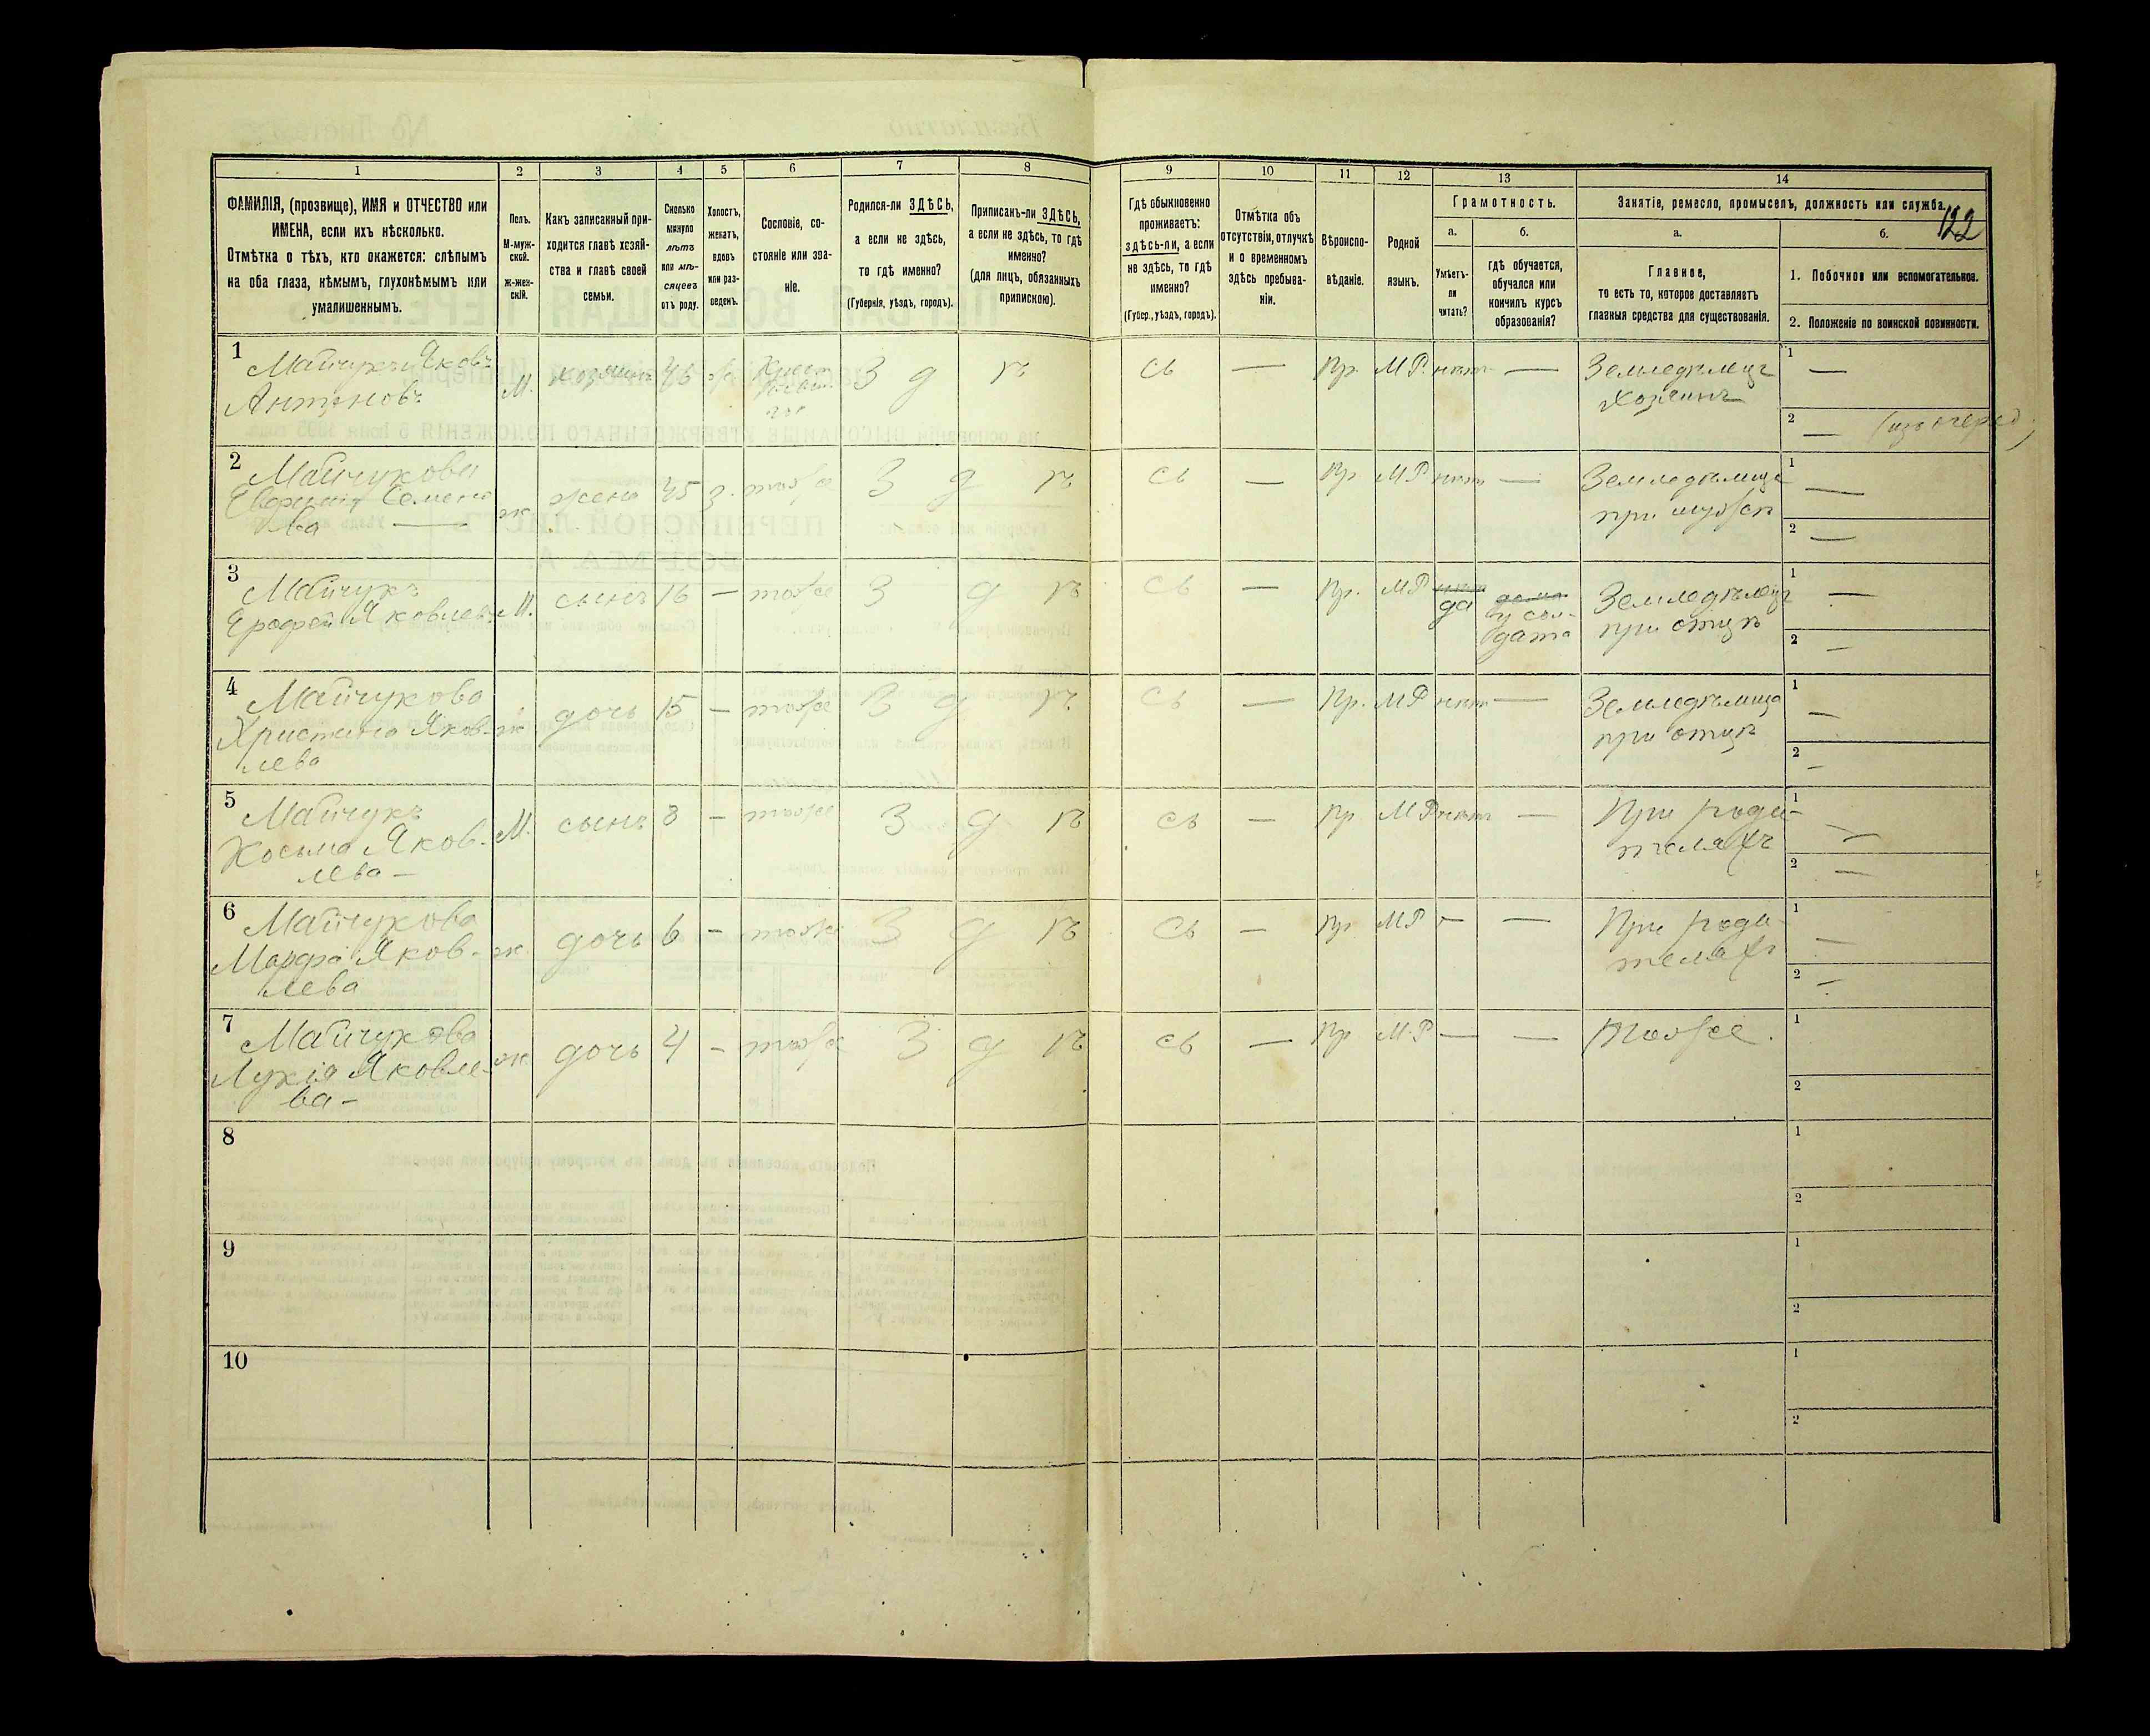 1
2
3
4
5
6
7
8
9
10
11
12
13
14
ФАМИЛІЯ, (прозвище), ИМЯ и ОТЧЕСТВО или
ИМЕНА, если ихъ нѣсколько.
Отмѣтка о тѣхъ, кто окажется: слѣпымъ
на оба глаза, нѣмымъ, глухонѣмымъ или
умалишеннымъ.
Полъ.
М-муж-
ской.
Ж-жен-
скій.
Какъ записанный при-
ходится главѣ хозяй-
ства и главѣ своей
семьи.
Сколько
минуло
лѣтъ
или мѣ-
сяцевъ
отъ роду.
Холостъ,
женатъ,
вдовъ
или раз-
веденъ.
Сословіе, со-
стояніе или зва-
ніе.
Родился-ли ЗДѢСЬ,
а если не здѣсь,
то гдѣ именно?
(Губернія, уѣздъ, городъ).
Приписанъ-ли ЗДѢСЬ,
а если не здѣсь, то гдѣ
именно?
(для лицъ, обязанныхъ
припискою).
Гдѣ обыкновенно
проживаетъ:
здѣсь-ли, а если
не здѣсь, то гдѣ
именно?
(Губер., уѣздъ, городъ).
Отмѣтка объ
отсутствіи, отлучкѣ
и о временномъ
здѣсь пребыва-
ніи.
Вѣроиспо-
вѣданіе.
Родной
языкъ.
Грамотность.
а.
Умѣетъ-
ли
читать?
б.
гдѣ обучается,
обучался или
кончилъ курсъ
образованія?
Занятіе, ремесло, промыселъ, должность или служба.
122
а.
Главное,
то есть то, которое доставляетъ
главныя средства для существованія.
б.
1. Побочное или вспомогательное.
2. Положеніе по воинской повинности.
1 Майчукъ Яковъ
Антоновъ
М. хозяинъ 46
З д ѣ сь — Пр. М Р. нѣтъ —
Земледѣлецъ
Хозяинъ
1 —
2 —
2 Майчукова
Евфимія Семено
ва —
ж жена 45 з. тоже З д ѣ сь — Пр М Р нѣтъ —
Земледѣлица
при мужѣ
1 —
2 —
3 Майчукъ
Ерофей Яковлев.
М. сынъ 16 — тоже З д ѣ сь — Пр. М Р нѣтъ
да
дома
у сол-
дата
Земледѣлецъ
при отцѣ
1 —
2 —
4 Майчукова
Христина Яков-
лева
ж дочь 15 — тоже З д ѣ сь — Пр. М Р нѣтъ —
Земледѣлица
при отцѣ
1 —
2 —
5 Майчукъ
Косьма Яков-
лева —
М. сынъ 8 — тоже З д ѣ сь — Пр М Р нѣтъ —
При роди-
теляхъ
1 —
2 —
6 Майчукова
Марфа Яков-
лева
ж. дочь 6 — тоже З д ѣ сь — Пр М Р — —
При роди-
теляхъ
1 —
2 —
7 Майчукова
Лукія Яковле-
ва —
ж дочь 4 — тоже З д ѣ сь — Пр М.Р — —
Тоже.
1
2
8
1
2
9
1
2
10
1
2